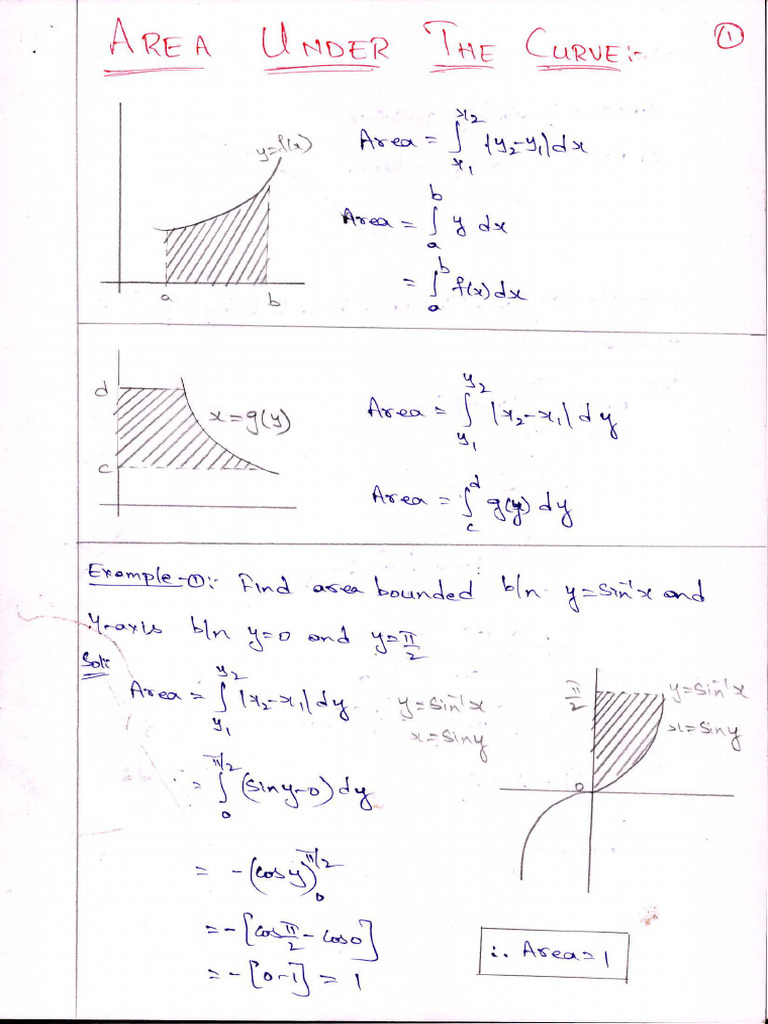 AREA UNDER THE CURVE:-
①
y=f(x)
a
b
Area = ∫_{x₁}^{x₂} |y₂-y₁| dx
Area = ∫_a^b y dx
= ∫_a^b f(x) dx
d
c
x=g(y)
Area = ∫_{y₁}^{y₂} |x₂-x₁| dy
Area = ∫_c^d g(y) dy
Example-①:- Find area bounded b/n y=Sin⁻¹x and
Y-axis b/n y=0 and y=π/2
Sol:
Area = ∫_{y₁}^{y₂} |x₂-x₁| dy
y=Sin⁻¹x
x=Siny
= ∫_0^{π/2} (Siny-0) dy
= -(Cosy)_0^{π/2}
= -[Cos π/2 - Cos0]
= -[0-1] = 1
π/2
0
y=Sin⁻¹x
x=Siny
∴ Area=1